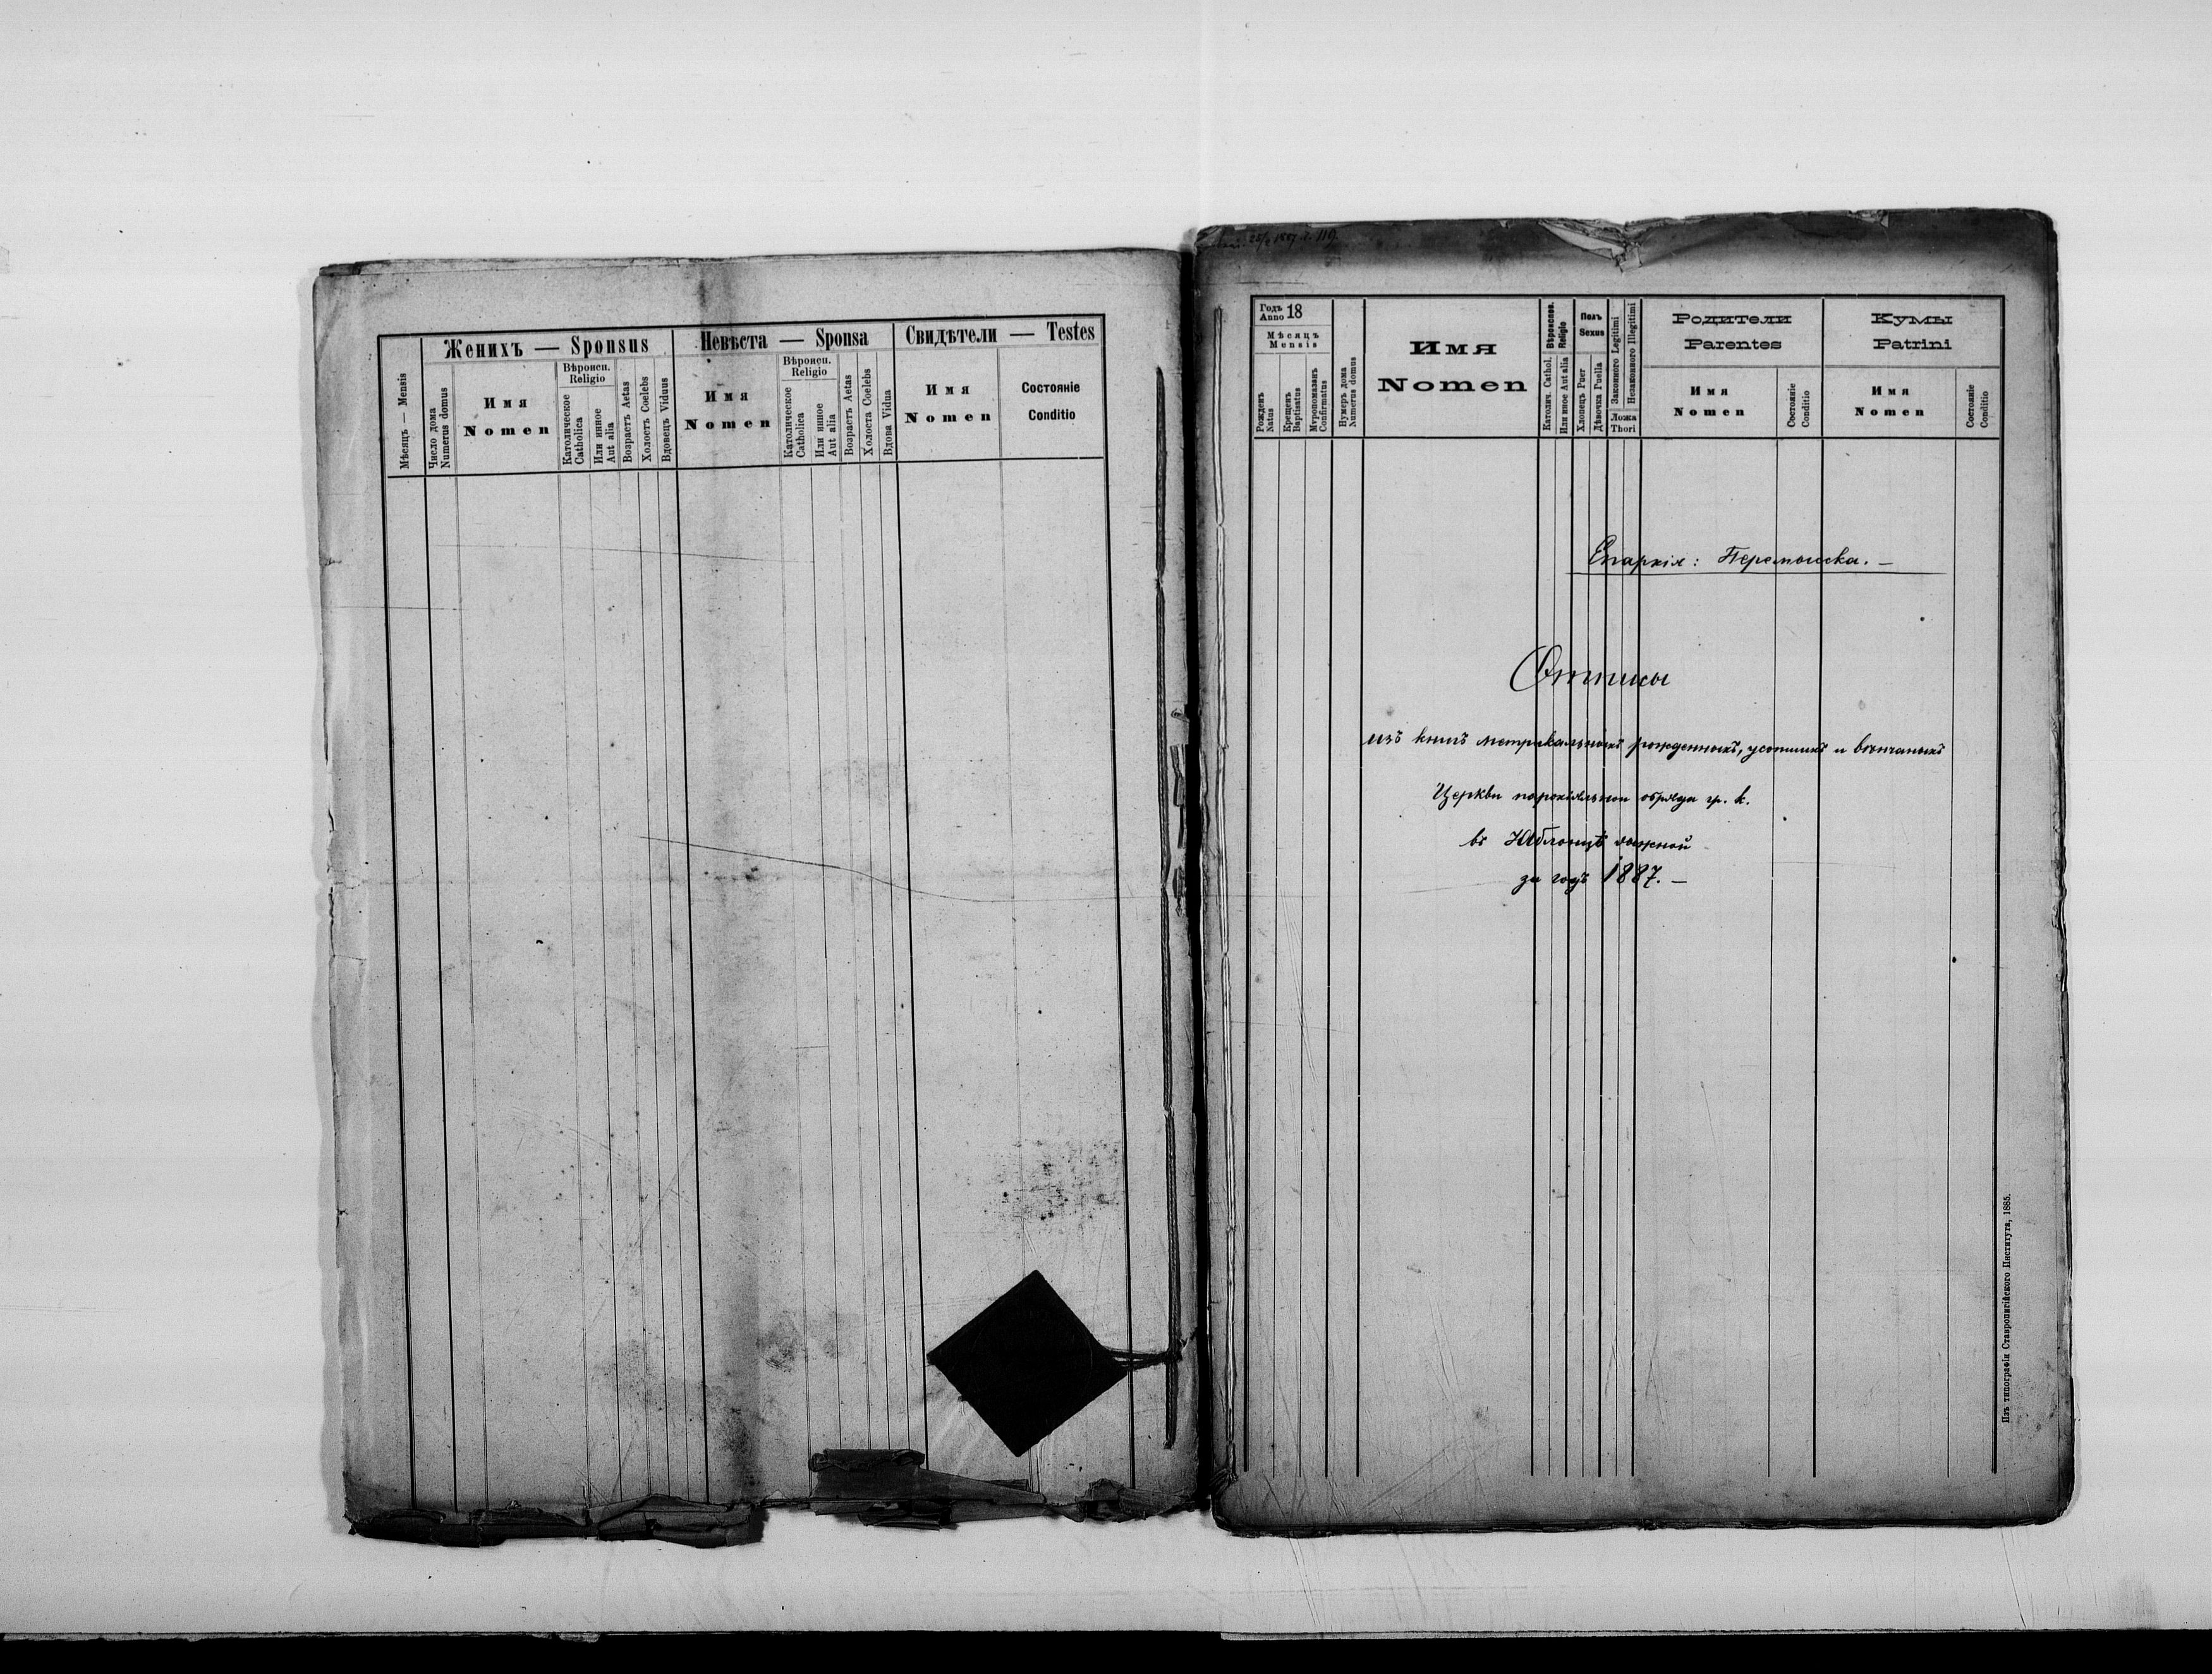 Женихъ — Sponsus
Невѣста — Sponsa
Свидѣтели — Testes
Мѣсяцъ — Mensis
Число дома
Numerus domus
Имя
Nomen
Вѣроисп.
Religio
Католическое
Catholica
Или инное
Aut alia
Возрастъ Aetas
Холостъ Coelebs
Вдовецъ Viduus
Имя
Nomen
Вѣроисп.
Religio
Католическое
Catholica
Или инное
Aut alia
Возрастъ Aetas
Холоста Coelebs
Вдова Vidua
Имя
Nomen
Состояніе
Conditio
25/2 1887
Годъ
Anno 18
Мѣсяцъ
Mensis
Рожденъ
Natus
Крещенъ
Baptisatus
Мѵропомазанъ
Confirmatus
Нумеръ дома
Numerus domus
Имя
Nomen
Вѣроиспов.
Religio
Католич. Cathol.
Или иное Aut alia
Полъ
Sexus
Хлопецъ Puer
Дѣвочка Puella
Законного Legitimi
Незаконного Illegitimi
Ложа
Thori
Родители
Parentes
Имя
Nomen
Состояніе
Conditio
Кумы
Patrini
Имя
Nomen
Состояніе
Conditio
Епархія: Перемыска. —
Отписы
изъ книгъ метрикальныхъ рожденныхъ, усопшихъ и вѣнчаныхъ
Церкви парохіяльнои обряда гр. к.
въ Яблонцѣ
за годъ 1887. —
Изъ типографіи Ставропигійского Института, 1885.